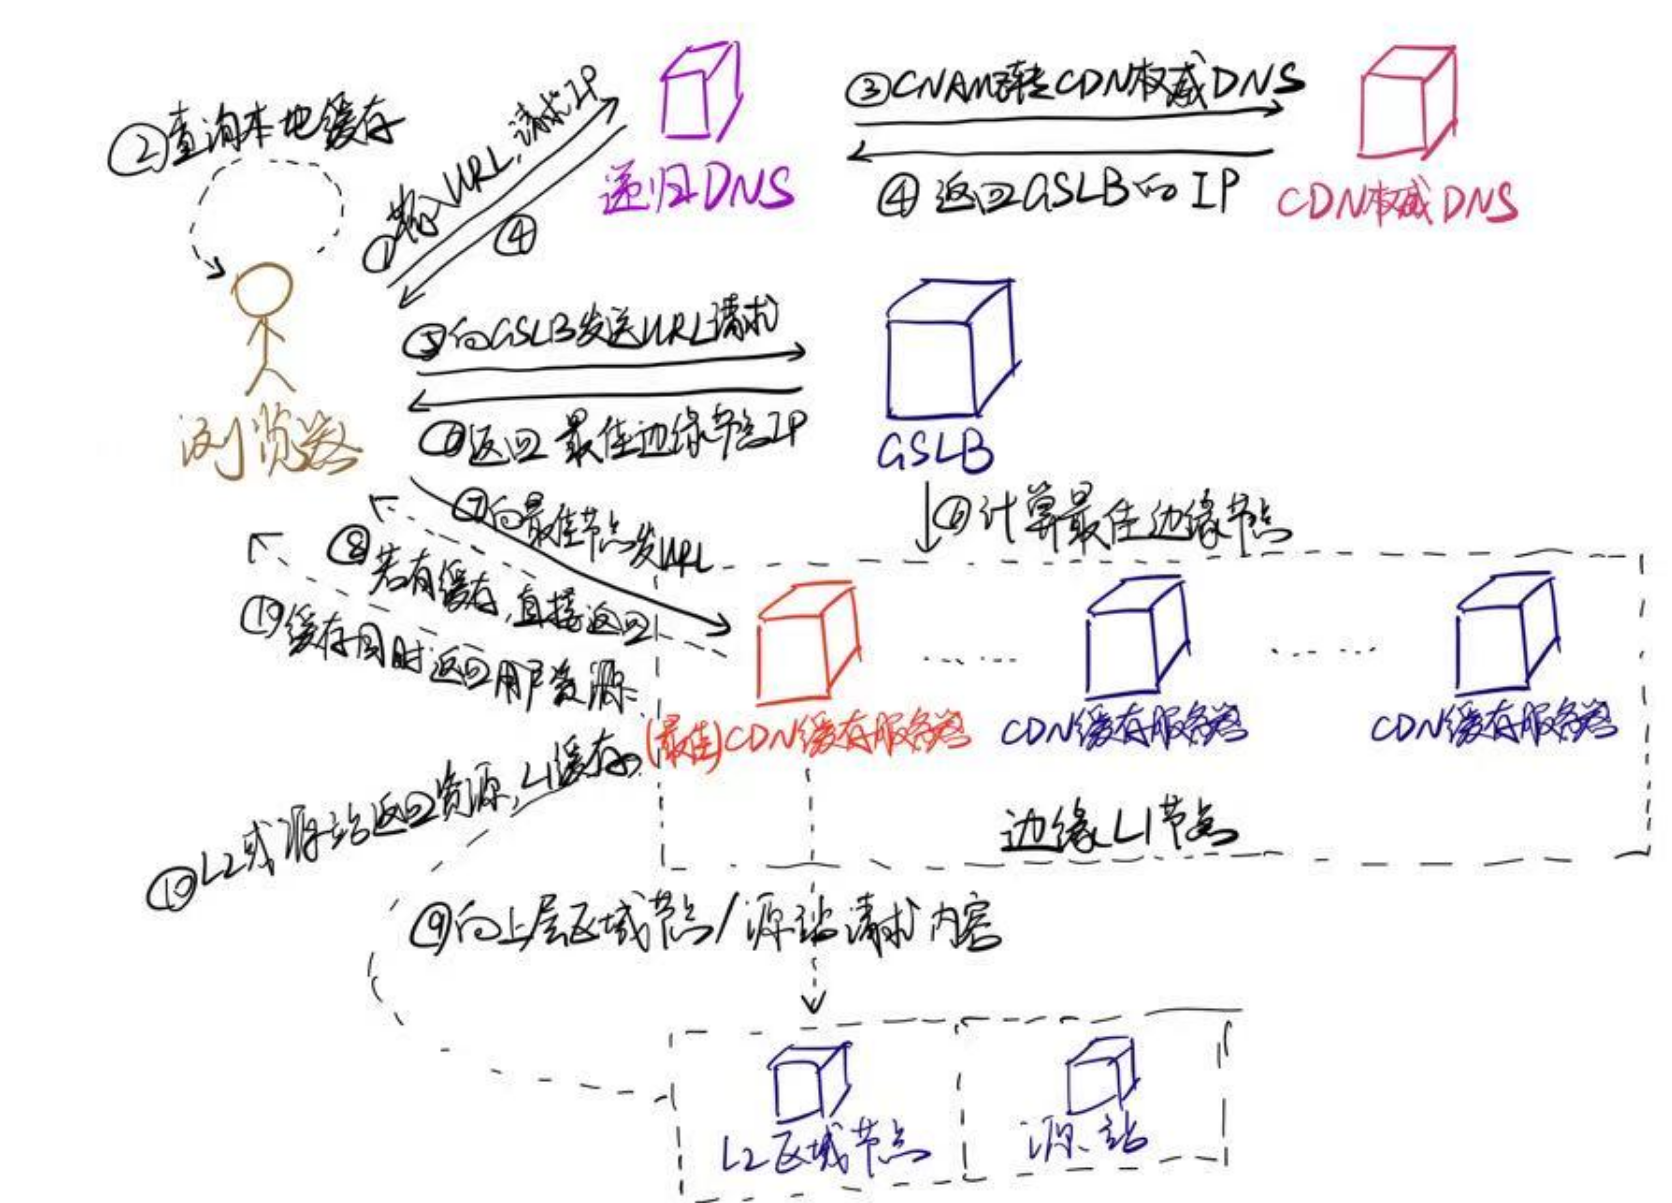 ②查询本地缓存
①输入URL,请求IP
④
递归DNS
③CNAME转CDN权威DNS
④ 返回GSLB的IP
CDN权威DNS
浏览器
⑤向GSLB发送URL请求
⑥返回最佳边缘节点IP
GSLB
⑥计算最佳边缘节点
⑦向最佳节点发URL
⑧若有缓存,直接返回
⑪缓存同时返回用户资源
(最佳)CDN缓存服务器
CDN缓存服务器
CDN缓存服务器
边缘L1节点
⑩L2或源站返回资源,L1缓存
⑨向上层区域节点/源站请求内容
L2区域节点
源站